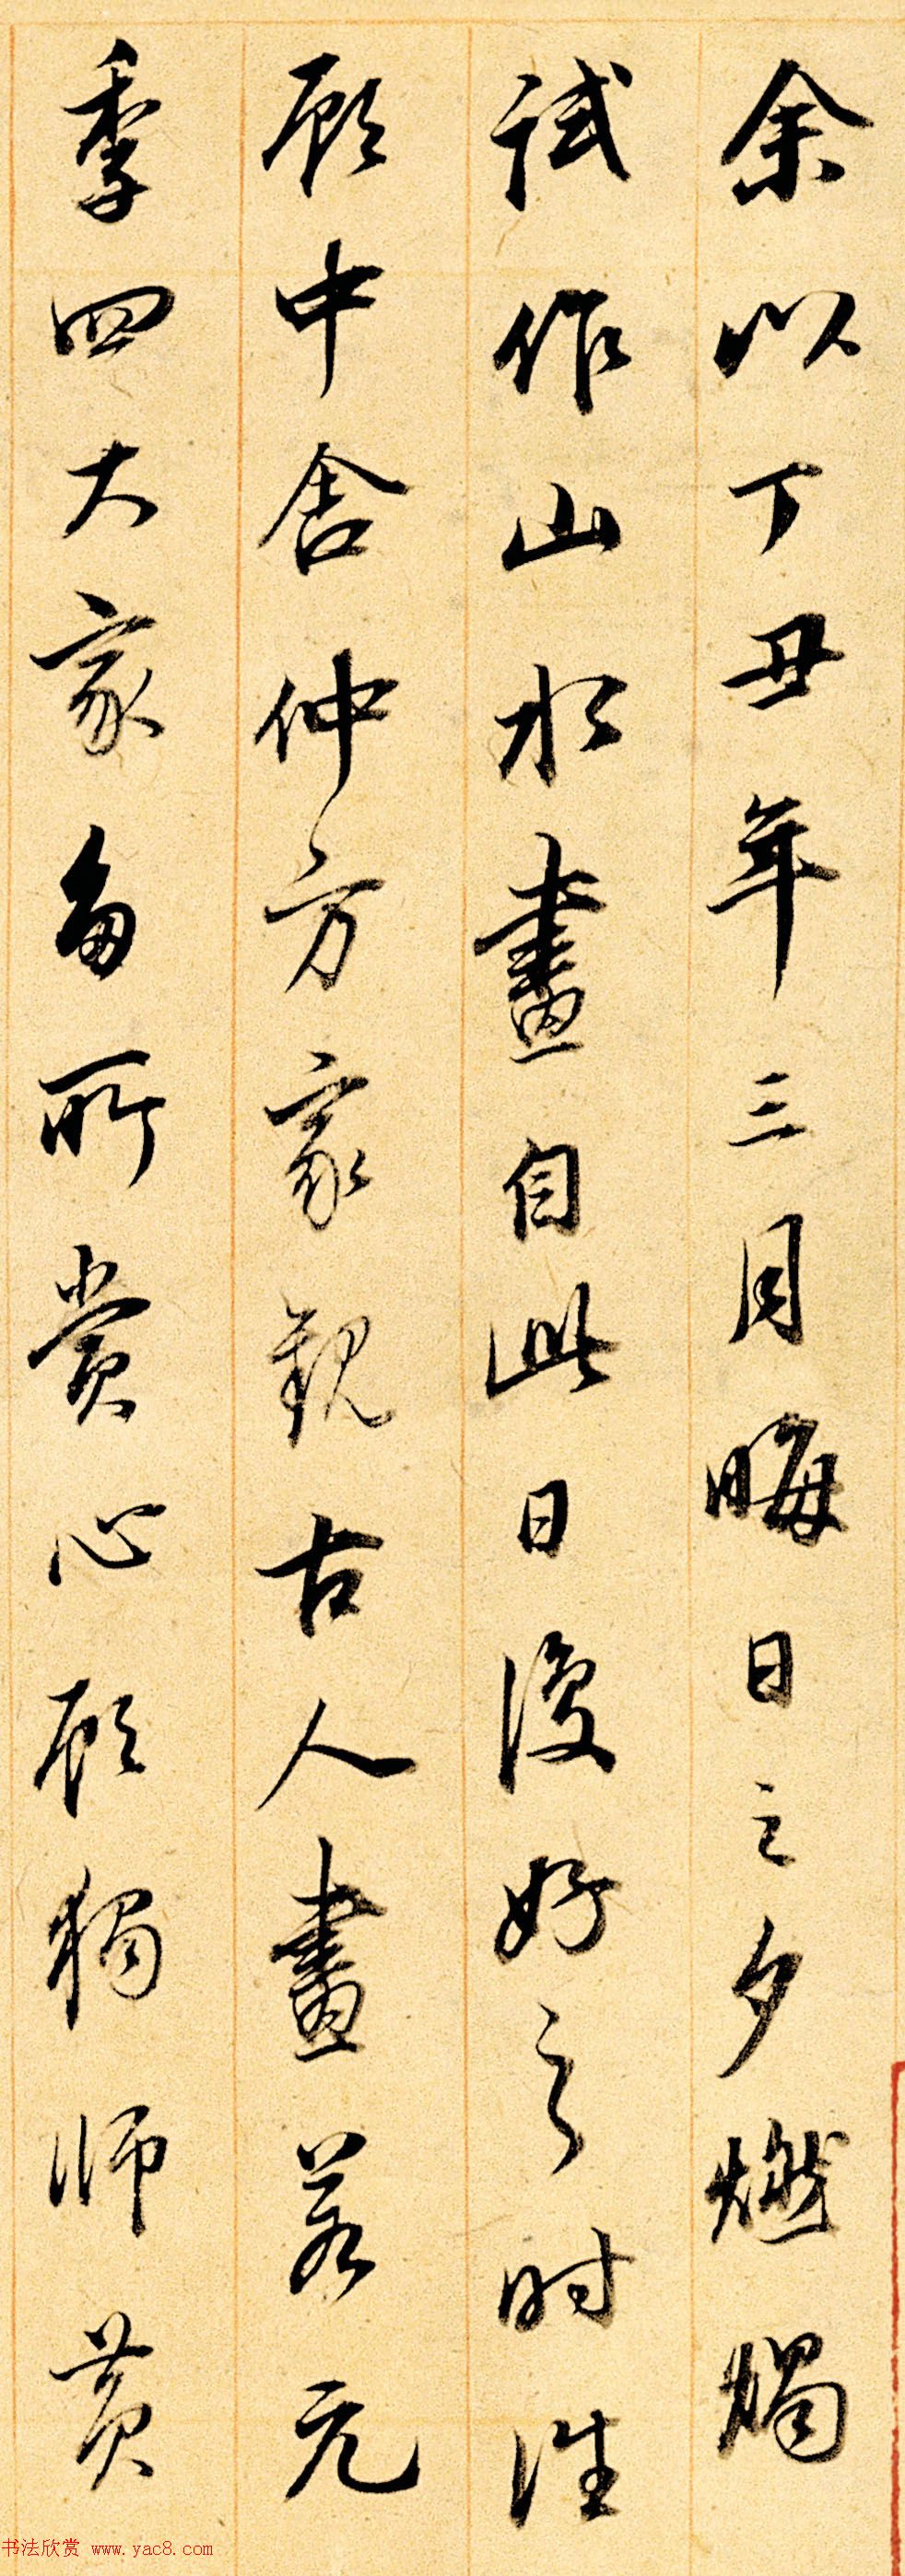 余以丁丑年三月晦日之夕燃燭
試作山水畫自此日復好之时往
顧中舍仲方家觀古人畫若元
季四大家多所賞心顧獨師黃
书法欣赏 www.yac8.com